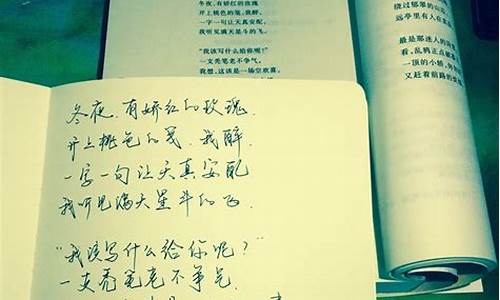 冬夜，有娇红的玫瑰
开上桃色的笺，我醉，
一字一句让天真安配，
我听见满天星斗的飞。
“我该写什么给你呢？”
一支秃笔老不争气，
我想，这该是一场空欢喜，
绕过郁翠的山
远亭里有人在
最是那迷人的
看，乱鸦正点破
一顶的小轿，
又赶着前路的
冬夜，有娇红的玫瑰，
开上桃色的笺，我醉，
一字一句让天真安配
我听见满天星斗的飞
“我该写什么给你呢？”
一支秃笔老不争气，